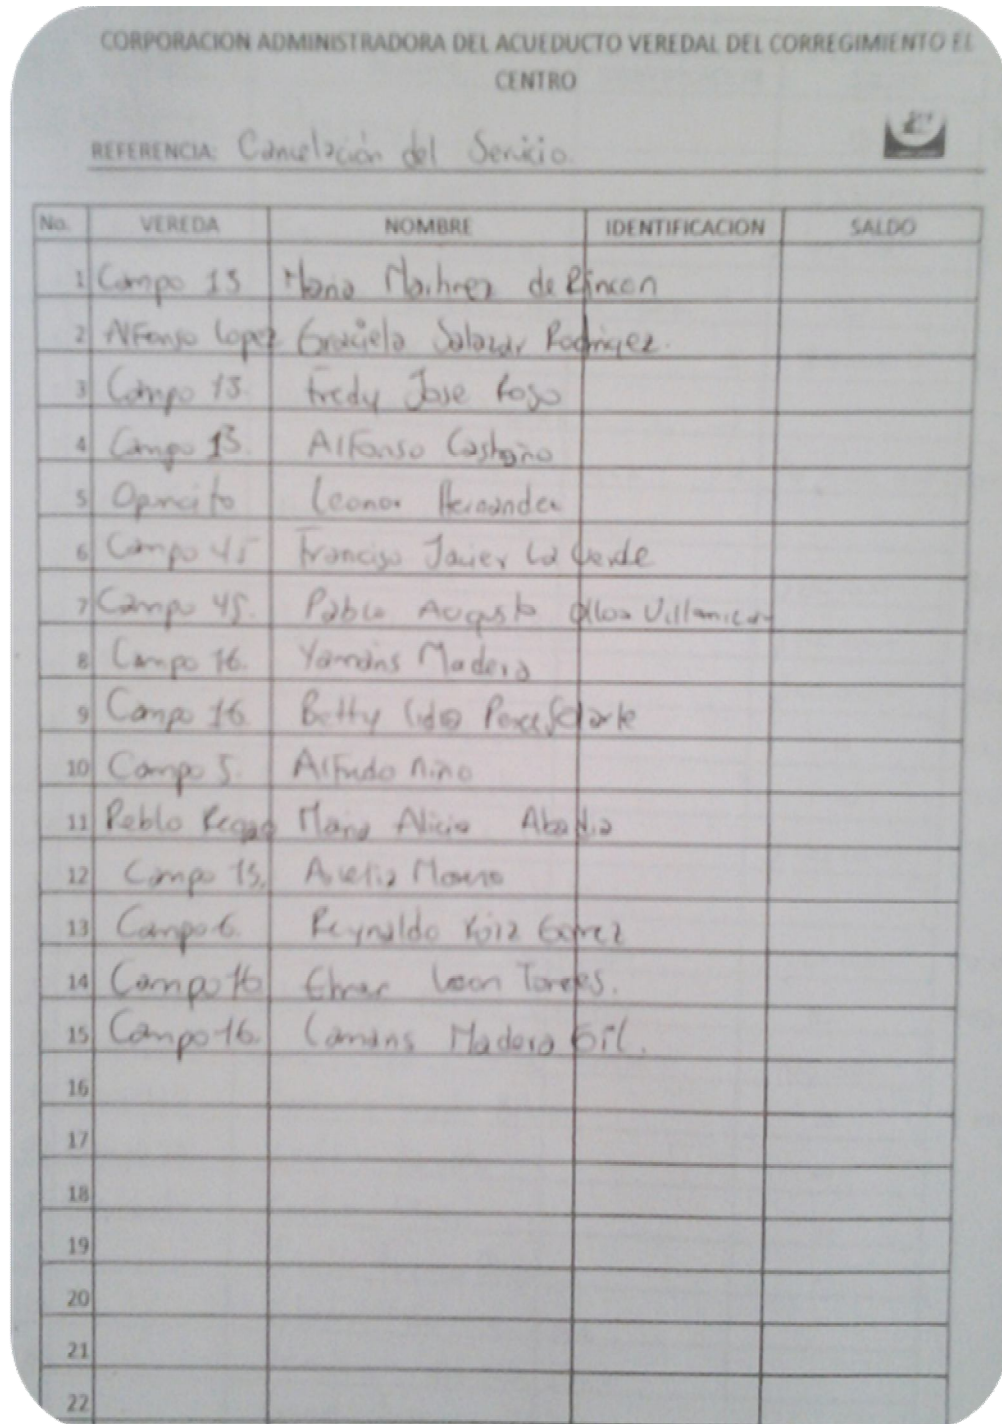 CORPORACION ADMINISTRADORA DEL ACUEDUCTO VEREDAL DEL CORREGIMIENTO EL
CENTRO
REFERENCIA: Cancelación del Servicio.
No. VEREDA NOMBRE IDENTIFICACION SALDO
1 Campo 13 Maria Martinez de Rincon
2 Alfonso Lopez Graciela Salazar Rodriguez.
3 Campo 13. Fredy Jose
4 Campo 13. Alfonso Castaño
5 Leonor Hernandez
6 Campo 45 Francisco Javier La Verde
7 Campo 45. Pablo Augusto Ulloa
8 Campo 16. Madera
9 Campo 16. Betty
10 Campo 5. Alfredo Niño
11 Maria Alicia Abadia
12 Campo 13. Moreno
13 Campo 6. Reynaldo Gomez
14 Campo 16 Leon Torres.
15 Campo 16. Madera Gil.
16
17
18
19
20
21
22